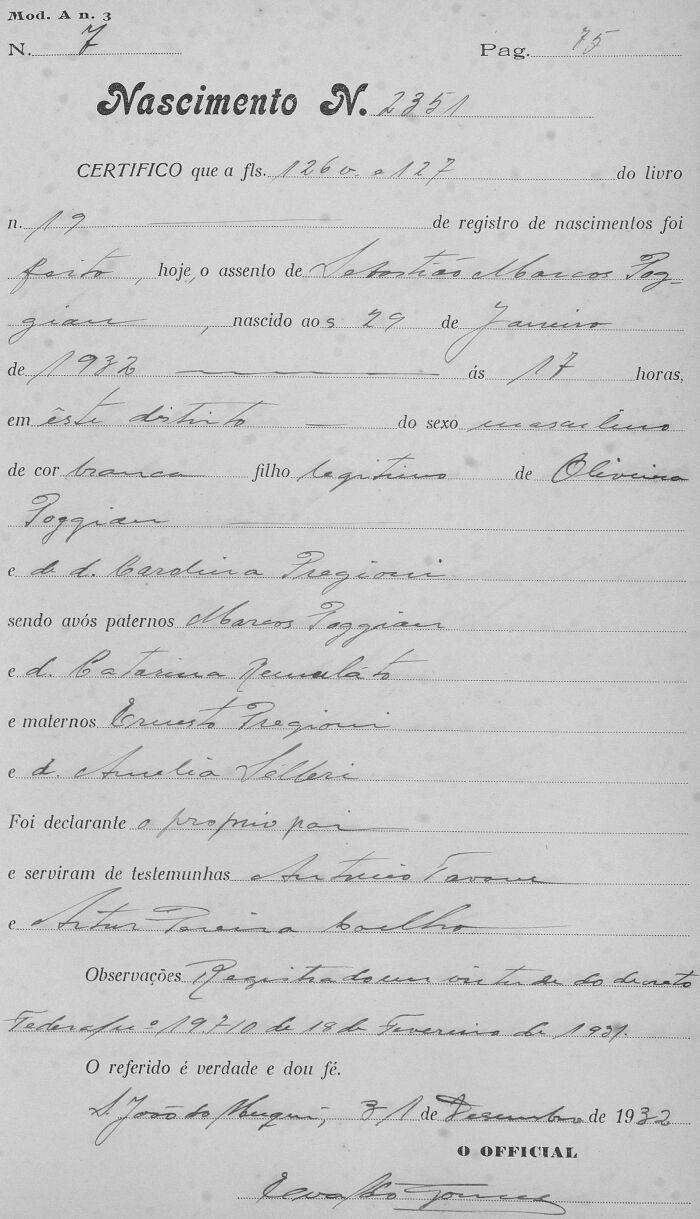 Mod. A n. 3
N. 7 Pag. 75
Nascimento N. 2351
CERTIFICO que a fls. 126v. e 127 do livro
n. 19 de registro de nascimentos foi
feito, hoje, o assento de Sebastião Marcos Pog-
gian, nascido aos 29 de Janeiro
de 1932 ás 17 horas,
em êste distrito do sexo masculino
de cor branca filho legitimo de Oliveira
Poggian
e de d. Carolina Pregioni
sendo avós paternos Marcos Poggian
e d. Catarina
e maternos Ernesto Pregioni
e d. Amelia Selleri
Foi declarante o proprio pai
e serviram de testemunhas Antonio Favove
e Artur Pereira Coelho
Observações Registrado em virtude do decreto
Federal nº 19710 de 18 de Fevereiro de 1931.
O referido é verdade e dou fé.
S. João do Muqui, 31 de Desembro de 1932
O OFFICIAL
Gomes